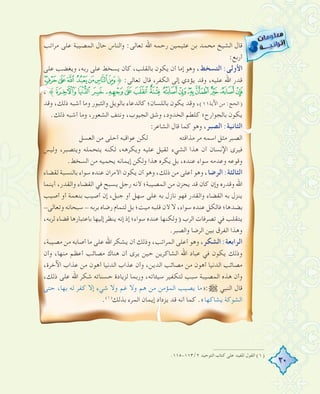 معلومات إثرائية
قال الشيخ محمد بن عثيمين رحمه الله تعالى: والناس حال المصيبة على مراتب
أربع:
الأولى: التسخط، وهو إما أن يكون بالقلب، كأن يسخط على ربه، ويغضب على
قدر الله عليه، وقد يؤدي إلى الكفر، قال تعالى: ﴿ وَمِنَ النَّاسِ مَن يَعْبُدُ اللَّهَ عَلَىٰ حَرْفٍ
فَإِنْ أَصَابَهُ خَيْرٌ اطْمَأَنَّ بِهِ وَإِنْ أَصَابَتْهُ فِتْنَةٌ انقَلَبَ عَلَىٰ وَجْهِهِ خَسِرَ الدُّنْيَا وَالْآخِرَةَ ﴾ ،
(الحج: من الآية ١١)، وقد يكون باللسان؛ كالدعاء بالويل والثبور وما أشبه ذلك، وقد
يكون بالجوارح؛ كلطم الخدود، وشق الجيوب، ونتف الشعور، وما أشبه ذلك.
الثانية: الصبر، وهو كما قال الشاعر:
الصبر مثل اسمه مر مذاقته لكن عواقبه أحلى من العسل
فيرى الإنسان أن هذا الشيء ثقيل عليه ويكرهه، لكنه يتحمله ويتصبر، وليس
وقوعه وعدمه سواء عنده، بل يكره هذا ولكن إيمانه يحميه من السخط.
الثالثة: الرضا، وهو أعلى من ذلك، وهو أن يكون الأمران عنده سواء بالنسبة لقضاء
الله وقدره وإن كان قد يحزن من المصيبة؛ لأنه رجل يسبح في القضاء والقدر، أينما
ينزل به القضاء والقدر فهو نازل به على سهل أو جبل، إن أصيب بنعمة أو أصيب
بضدها؛ فالكل عنده سواء، لا لأن قلبه ميت؛ بل لتمام رضاه بربه - سبحانه وتعالى-
يتقلب في تصرفات الرب ( ولكنها عنده سواء؛ إذ إنه ينظر إليها باعتبارها قضاء لربه،
وهذا الفرق بين الرضا والصبر.
الرابعة: الشكر، وهو أعلى المراتب، وذلك أن يشكر الله على ما أصابه من مصيبة،
وذلك يكون في عباد الله الشاكرين حين يرى أن هناك مصائب أعظم منها، وأن
مصائب الدنيا أهون من مصائب الدين، وأن عذاب الدنيا أهون من عذاب الآخرة،
وأن هذه المصيبة سبب لتكفير سيئاته، وربما لزيادة حسناته شكر الله على ذلك،
قال النبي ﷺ: «ما يصيب المؤمن من هم ولا غم ولا شيء إلا كفر له بها، حتى
الشوكة يشاكها». كما أنه قد يزداد إيمان المرء بذلك.(١)
(١) القول المفيد على كتاب التوحيد ٢/ ١١٣-١١٥.
٣٠